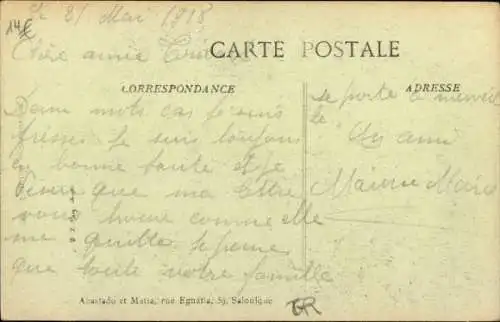 14€
Le 31 Mai 1918
Chère amie
CARTE POSTALE
CORRESPONDANCE
ADRESSE
Deux mots car je suis
pressé Je suis toujours
en bonne santé et je
pense que ma lettre
vous trouve comme elle
me quitte Je pense
que toute votre famille
se porte à merveil
le
ami
Abastado et Matia, rue Egnatia, 59, Salonique